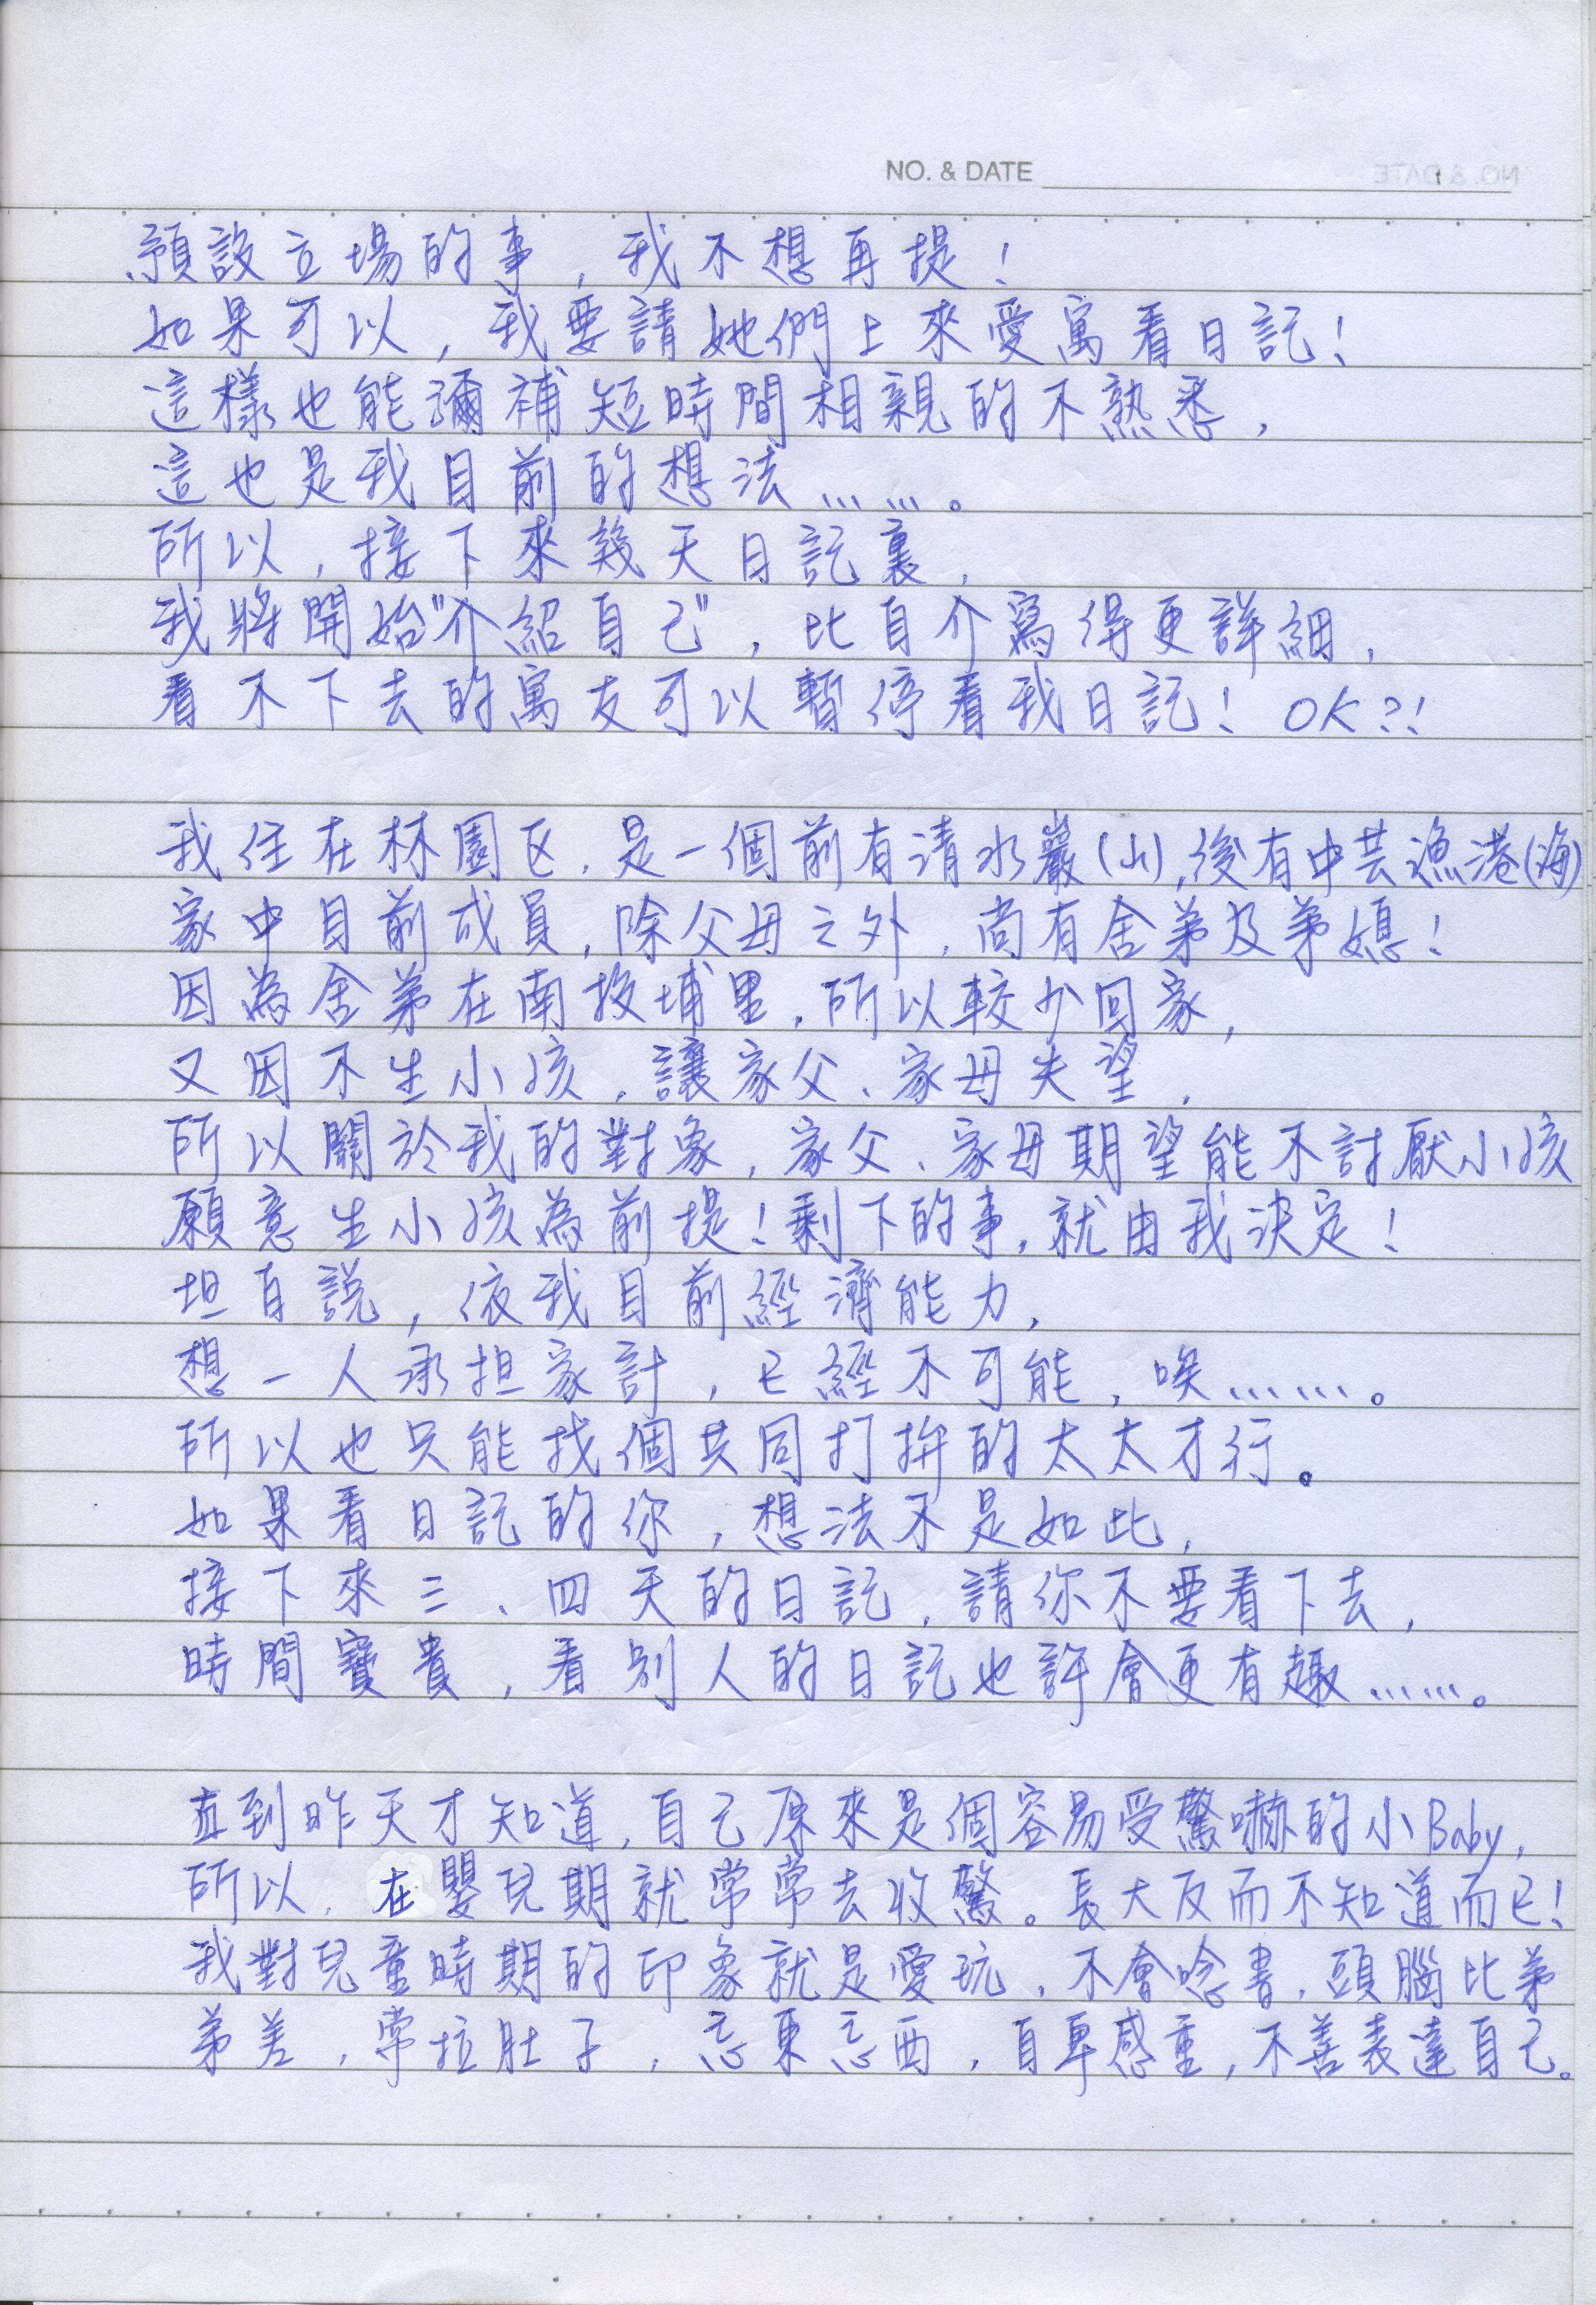 NO. & DATE
預設立場的事，我不想再提！
如果可以，我要請她們上來愛寓看日記！
這樣也能彌補短時間相親的不熟悉，
這也是我目前的想法……。
所以，接下來幾天日記裏，
我將開始"介紹自己"，比自介寫得更詳細，
看不下去的寓友可以暫停看我日記！OK？！
我住在林園区，是一個前有清水巖(山)，後有中芸漁港(海)
家中目前成員，除父母之外，尚有舍弟及弟媳！
因為舍弟在南投埔里，所以較少回家，
又因不生小孩，讓家父、家母失望，
所以關於我的對象，家父、家母期望能不討厭小孩
願意生小孩為前提！剩下的事，就由我決定！
坦白說，依我目前經濟能力，
想一人承担家計，已經不可能，唉……。
所以也只能找個共同打拚的太太才行。
如果看日記的你，想法不是如此，
接下來三、四天的日記，請你不要看下去，
時間寶貴，看別人的日記也許會更有趣……。
直到昨天才知道，自己原來是個容易受驚嚇的小Baby，
所以，在嬰兒期就常常去收驚。長大反而不知道而已！
我對兒童時期的印象就是愛玩，不會唸書，頭腦比弟
弟差，常拉肚子，忘東忘西，自卑感重，不善表達自己。